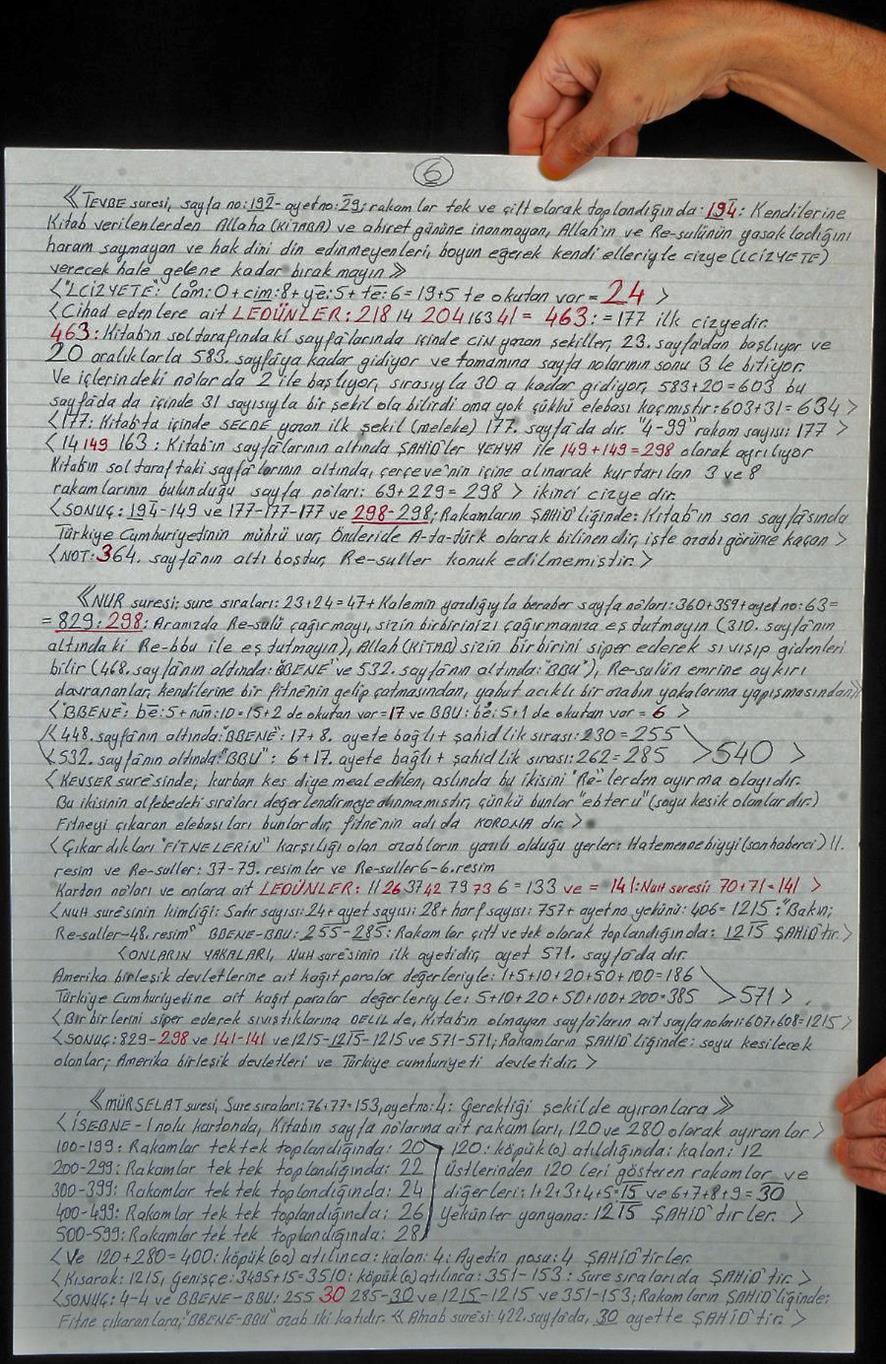 6
《TEVBE suresi, sayfa no:192- ayet no:29; rakamlar tek ve çift olarak toplandığında: 194: Kendilerine
Kitab verilenlerden Allaha (KİTABA) ve ahiret gününe inanmayan, Allah'ın ve Re-sulünün yasakladığını
haram saymayan ve hak dini din edinmeyenleri, boyun eğerek kendi elleriyle cizye (LCİZYETE)
verecek hale gelene kadar bırakmayın》
<"LCİZYETE": Lâm:0+cim:8+ye:5+te:6=19+5 te okutan var=24 >
<Cihad edenlere ait LEDÜNLER: 218 14 204 163 41= 463:=177 ilk cizyedir.
463: Kitab'ın sol tarafında ki sayfa'larında içinde CİN yazan şekiller, 23. sayfa'dan başlıyor ve
20 aralıklarla 583. sayfaya kadar gidiyor ve tamamına sayfa nolarının sonu 3 le bitiyor.
Ve içlerindeki nolar da 2 ile başlıyor, sırasıyla 30 a kadar gidiyor, 583+20=603 bu
sayfa'da da içinde 31 sayısıyla bir şekil ola bilirdi ama yok çünkü elebası kaçmıştır:603+31=634 >
<177: Kitab'ta içinde SECDE yazan ilk şekil (meleke) 177. sayfa'da dır. "4-99" rakam sayısı: 177 >
<14 149 163 : Kitab'ın sayfa'larının altında ŞAHİD'ler YEHYA ile 149+149=298 olarak ayrılıyor
Kitabın sol taraftaki sayfa'larının altında, çerçeve'nin içine alınarak kurtarılan 3 ve 8
rakamlarının bulunduğu sayfa no'ları: 69+229=298 > ikinci cizye dir.
<SONUÇ: 194-149 ve 177-177-177 ve 298-298; Rakamların ŞAHİD'liğinde: Kitab'ın son sayfa'sında
Türkiye Cumhuriyetinin mührü var, Önderide A-ta-türk olarak bilinendir, işte azabı görünce kaçan >
<NOT: 364. sayfa'nın altı boştur, Re-suller konuk edilmemiştir. >
《NUR suresi; sure sıraları: 23+24=47+ Kalemin yazdığıyla beraber sayfa no'ları:360+359+ayet no:63=
= 829: 298: Aranızda Re-sulü çağırmayı, sizin birbirinizi çağırmanıza eş tutmayın (310. sayfa'nın
altında ki Re-bbu ile eş tutmayın), Allah (KİTAB) sizin birbirini siper ederek sıvışıp gidenleri
bilir (468. sayfa'nın altında:"BBENE" ve 532. sayfa'nın altında:"BBU"), Re-sulün emrine aykırı
davrananlar, kendilerine bir fitne'nin gelip çatmasından, yahut acıklı bir azabın yakalarına yapışmasından》
<"BBENE": be:5+nun:10=15+2 de okutan var=17 ve BBU: be:5+1 de okutan var = 6 >
<448. sayfa'nın altında:"BBENE": 17+8. ayete bağlı+ şahidlik sırası:230=255
<532. sayfa'nın altında:"BBU": 6+17. ayete bağlı+ şahidlik sırası:262=285 >540 >
<KEVSER sure'sinde; kurban kes diye meal edilen, aslında bu ikisini "Re"-lerden ayırma olayıdır.
Bu ikisinin alfebedeki sıraları değerlendirmeye alınmamıştır, çünkü bunlar "ebteru" (soyu kesik olanlar dır.)
Fitneyi çıkaran elebaşıları bunlar dır, fitne'nin adı da KORONA dır. >
<Çıkardıkları "FİTNELERİN" karşılığı olan azabların yazılı olduğu yerler: Hatemennebiyyi (son haberci) 11.
resim ve Re-suller: 37-79. resimler ve Re-suller 6-6. resim
Karton no'ları ve onlara ait LEDÜNLER: 11 26 37 42 79 73 6 = 133 ve = 141:Nuh suresi: 70+71=141 >
<NUH sure'sinin kimliği: Satır sayısı:24+ayet sayısı:28+harf sayısı: 757+ayet no yekünü: 406=1215:"Bakın;
Re-suller-48. resim" BBENE-BBU: 255-285: Rakamlar çift ve tek olarak toplandığında: 1215 ŞAHİD'tir. >
<ONLARIN YAKALARI, NUH sure'sinin ilk ayetidir, ayet 571. sayfa'da dır.
Amerika birleşik devletlerine ait kağıt paralar değerleriyle: 1+5+10+20+50+100=186
Türkiye Cumhuriyetine ait kağıt paralar değerleriyle: 5+10+20+50+100+200=385 >571 >
<Bir birlerini siper ederek sıvıştıklarına DELİL de, Kitab'ın olmayan sayfa'ların ait sayfa noları:607+608=1215 >
<SONUÇ: 829-298 ve 141-141 ve 1215-1215-1215 ve 571-571; Rakamların ŞAHİD'liğinde: soyu kesilecek
olanlar; Amerika birleşik devletleri ve Türkiye cumhuriyeti devletidir. >
《MÜRSELAT suresi, Sure sıraları:76+77=153, ayet no:4: Gerektiği şekilde ayıranlara》
<İSEBNE-1 nolu kartonda, Kitab'ın sayfa no'larına ait rakamları, 120 ve 280 olarak ayıranlar >
100-199: Rakamlar tek tek toplandığında: 20 120: köpük(o) atıldığında: kalan: 12
200-299: Rakamlar tek tek toplandığında: 22 üstlerinden 120 leri gösteren rakamlar ve
300-399: Rakamlar tek tek toplandığında: 24 diğerleri: 1+2+3+4+5=15 ve 6+7+8+9=30
400-499: Rakamlar tek tek toplandığında: 26 yekünler yanyana: 1215 ŞAHİD'tirler. >
500-599: Rakamlar tek tek toplandığında: 28
<Ve 120+280=400: köpük(oo) atılınca: kalan: 4: Ayetin nosu: 4 ŞAHİD'tirler.
<Kısarak: 1215, Genişçe: 3495+15=3510: köpük(o) atılınca: 351-153 : Sure sıraları da ŞAHİD'tir. >
<SONUÇ: 4-4 ve BBENE-BBU: 255 30 285-30 ve 1215-1215 ve 351-153; Rakamların ŞAHİD'liğinde:
Fitne çıkaranlara; "BBENE-BBU" azab iki katıdır. 《 Ahzab suresi: 422. sayfa'da, 30 ayette ŞAHİD'tir. >